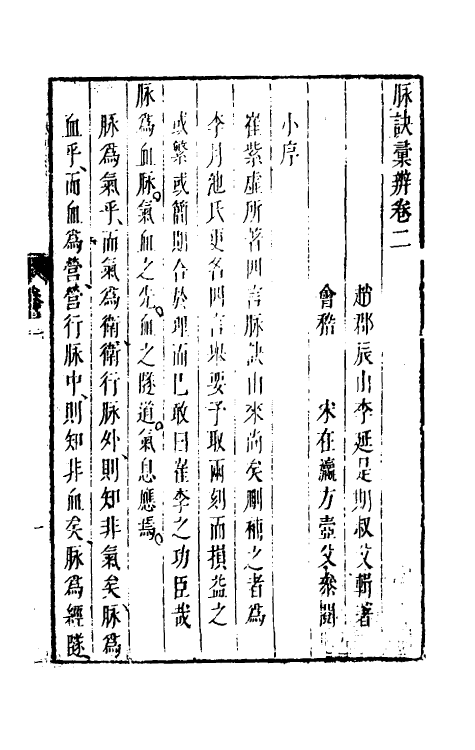 脉訣彙辨卷二
趙郡辰山李延是期叔父輯著
會稽 宋在瀛方壺父叅閱
小序
崔紫虛所著四言脉訣由來尚矣刪補之者爲
李月池氏更名四言舉要予取兩刻而損益之
或繁或簡期合於理而已敢曰崔李之功臣哉
脉爲血脉。氣血之先。血之隧道。氣息應焉。
脉爲氣乎、而氣爲衛、衛行脉外、則知非氣矣、脉爲
血乎、而血爲營、營行脉中、則知非血矣、脉爲經隧、